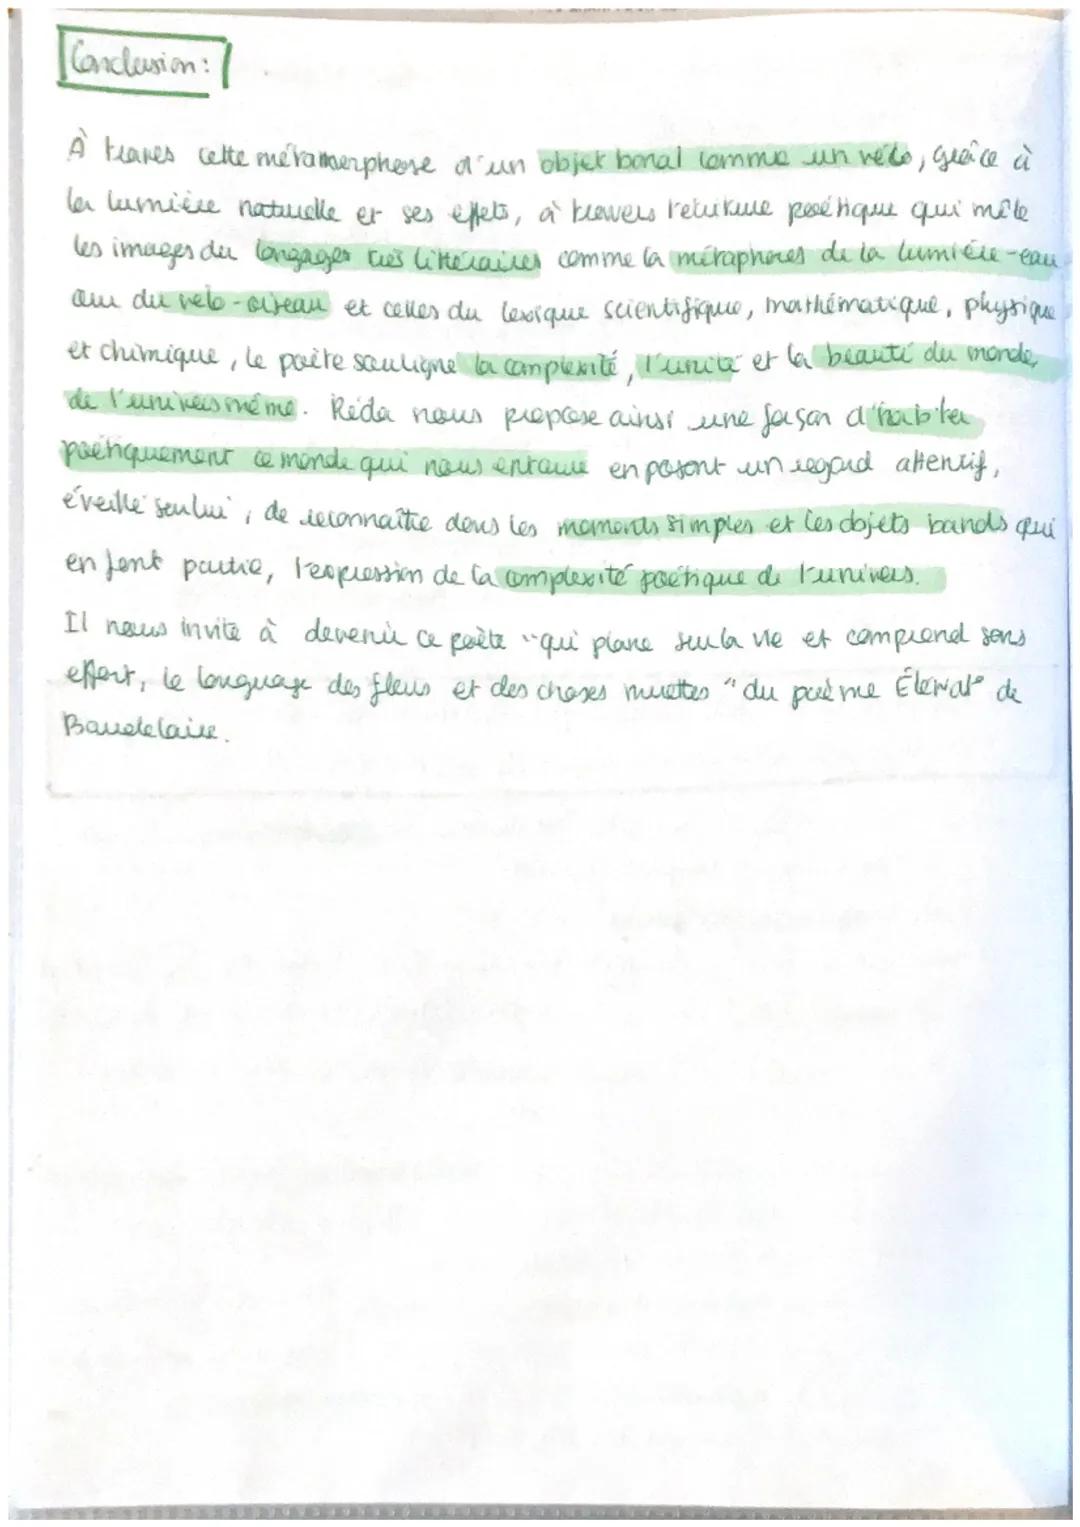 Conclusion:
À travers cette métamorphose d'un objet banal comme un vélo, grâce à
la lumière naturelle et ses effets, à travers l'écriture poétique qui mêle
les images du langages très littéraires comme la métaphores de la lumière-eau
ou du velo-oiseau et celles du lexique scientifique, mathématique, physique
et chimique, le poète souligne la complexité, l'unité et la beauté du monde,
de l'univers même. Réda nous propose ainsi une façon d'habiter
poétiquement ce monde qui nous entoure en posant un regard attentif,
éveillé sur lui, de reconnaître dans les moments simples et les objets banals qui
en font partie, l'expression de la complexité poétique de l'univers.
Il nous invite à devenir ce poète "qui plane sur la vie et comprend sans
effort, le language des fleurs et des choses muettes" du poème Élévat° de
Baudelaire.